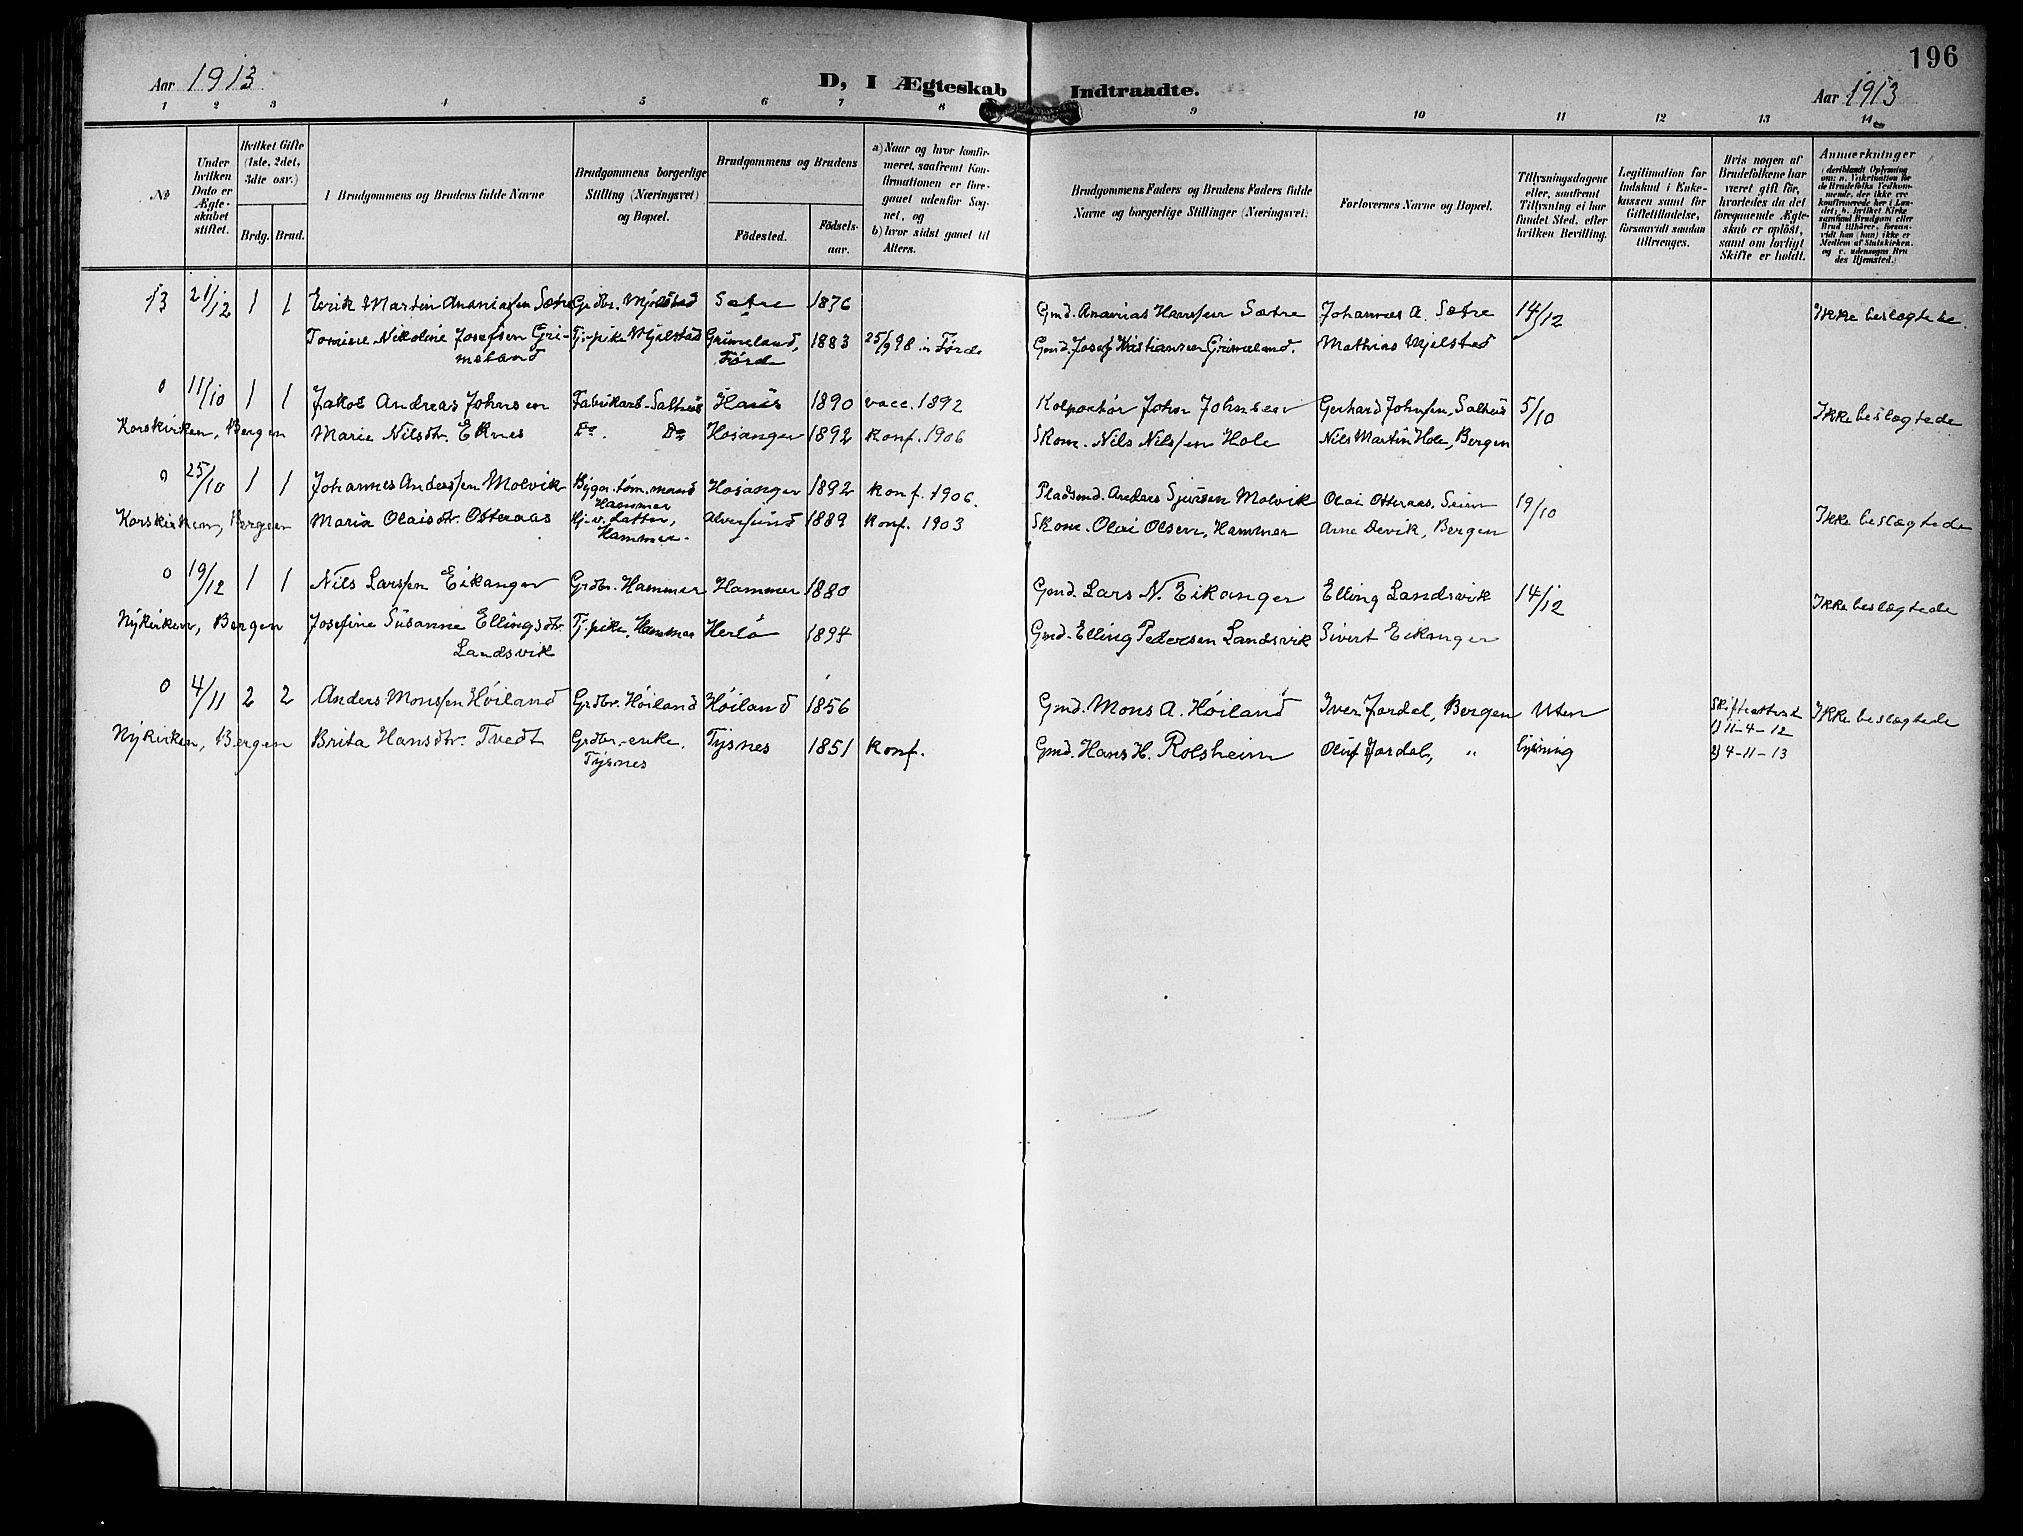 196
Aar 1913
D, I Ægteskab Indtraadte.
Aar 1913
1 2 3 4 5 6 7 8 9 10 11 12 13 14
No
Under hvilken Dato er Ægteskabet stiftet.
Hvilket Gifte (1ste, 2det, 3die osv.)
Brdg. Brud.
I Brudgommens og Brudens fulde Navne
Brudgommens borgerlige Stilling (Næringsvei) og Bopæl.
Brudgommens og Brudens
Fødested. Fødselsaar.
a) Naar og hvor konfirmeret, saafremt Konfirmationen er foregaaet udenfor Sognet, og
b) hvor sidst gaaet til Alters.
Brudgommens Faders og Brudens Faders fulde Navne og borgerlige Stillinger (Næringsvei)
Forlovernes Navne og Bopæl.
Tillysningsdagene eller, saafremt Tillysning ei har fundet Sted, efter hvilken Bevilling.
Legitimation for Indskud i Enkekassen samt for Giftetilladelse, forsaavidt saadan tiltrænges.
Hvis nogen af Brudefolkene har været gift før, hvorledes da det foregaaende Ægteskab er opløst, samt om lovligt Skifte er holdt.
Anmærkninger
13 21/12 1 1 Erik Martin Ananiassen Sætre Grdbr. Mjelstad Sætre 1876 Gmd. Ananias Hanssen Sætre Johannes A. Sætre 14/12 Ikke beslegtede.
Tomine Nikoline Josefsen Grimeland Tj.pike Mjelstad Grimeland, Førde 1883 25/9 98 i Førde Gmd. Josef Kristiansen Grimeland. Mathias Mjelstad
0 11/10 1 1 Jakob Andreas Johnsen Fabrikarb. Salhus Haus 1890 vacc. 1892 Kolportør John Johnsen Gerhard Johnsen, Salhus 5/10 Ikke beslegtede
Korskirken, Bergen Marie Nilsdtr. Eknes Do. Do Hosanger 1892 Konf. 1906 Skom. Nils Nilssen Hole Nils Martin Hole, Bergen
0 25/10 1 1 Johannes Anderssen Molvik Hammer Hosanger 1892 Konf. 1906. Pladsmd. Anders Sjursen Molvik Olai Otteraas, Seim 19/10 Ikke beslægtede
Korskirken, Bergen Maria Olaisdtr. Otteraas Hammer. Alversund 1889 Konf. 1903 Skom. Olai Olsen, Hammer Arne Devik, Bergen
0 19/12 1 1 Nils Larssen Eikanger Grdbr. Hammer Hammer 1880 Gmd. Lars N. Eikanger Elling Landsvik 14/12 Ikke beslegtede
Nykirken, Bergen Josefine Susanne Ellingsdtr. Landsvik Tj.pike, Hammer Herlø 1894 Gmd. Elling Pedersen Landsvik Sivert Eikanger
0 4/11 2 2 Anders Monssen Høiland Grdbr. Høiland Høiland 1856 Gmd. Mons A. Høiland Iver Jordal, Bergen Uten Skifteattest 1) 11-4-12 Ikke beslegtede
Nykirken, Bergen Brita Hansdtr. Tvedt Grdbr.-enke, Tysnes Tysnes 1851 Konf. Gmd. Hans H. Rolsheim Oluf Jordal, " lysning 2) 4-11-13